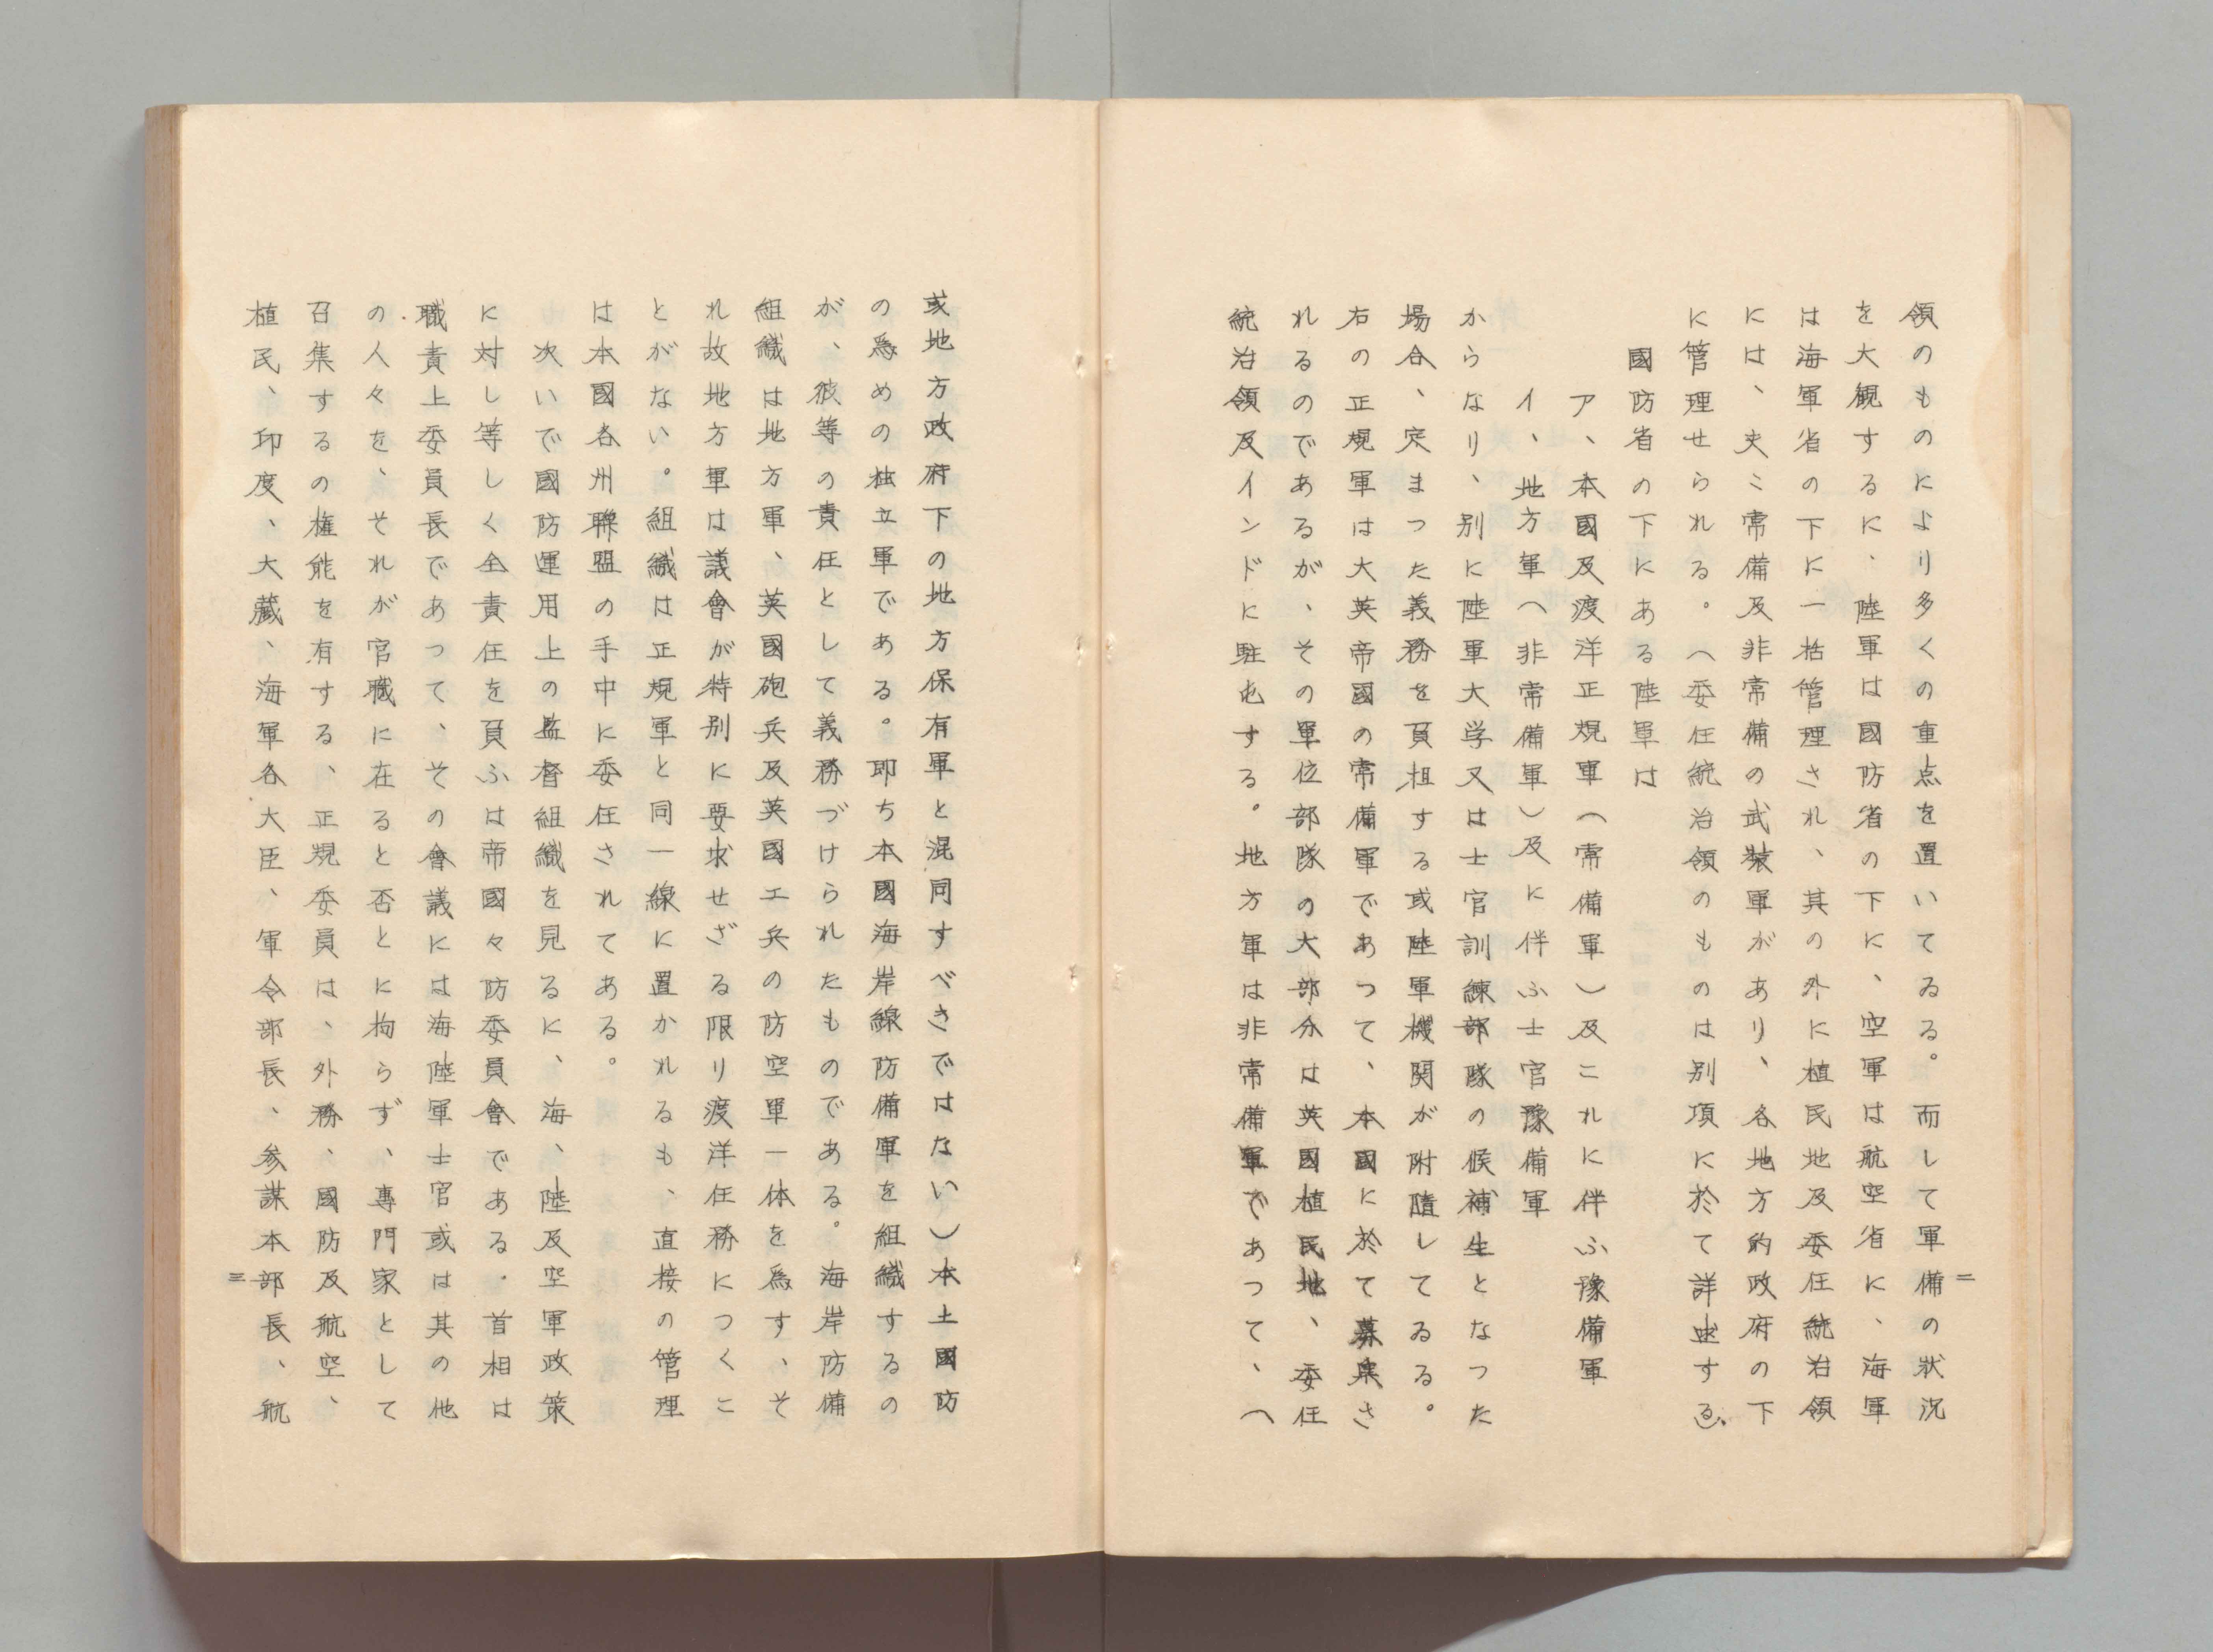 領のものにより多くの重点を置いてゐる。而して軍備の狀況
を大観するに、陸軍は國防省の下に、空軍は航空省に、海軍
は海軍省の下に一括管理され、其の外に植民地及委任統治領
には、夫々常備及非常備の武装軍があり、各地方的政府の下
に管理せられる。(委任統治領のものは別項に於て詳述する)
國防省の下にある陸軍は
ア、本國及渡洋正規軍(常備軍)及これに伴ふ豫備軍
イ、地方軍(非常備軍)及に伴ふ士官豫備軍
からなり、別に陸軍大学又は士官訓練部隊の候補生となった
場合、定まった義務を負担する或陸軍機関が附隨してゐる。
右の正規軍は大英帝國の常備軍であつて、本國に於て募集さ
れるのであるが、その軍位部隊の大部分は英國植民地、委任
統治領及インドに駐屯する。地方軍は非常備軍であつて、(
二
或地方政府下の地方保有軍と混同すべきではない)本土國防
の爲めの独立軍である。即ち本國海岸線防備軍を組織するの
が、彼等の責任として義務づけられたものである。海岸防備
組織は地方軍、英國砲兵及英國工兵の防空軍一体を爲す、そ
れ故地方軍は議會が特別に要求せざる限り渡洋任務につくこ
とがない。組織は正規軍と同一線に置かれるも、直接の管理
は本國各州聯盟の手中に委任されてある。
次いで國防運用上の監督組織を見るに、海、陸及空軍政策
に対し等しく全責任を負ふは帝國々防委員會である。首相は
職責上委員長であって、その會議には海陸軍士官或は其の他
の人々を、それが官職に在ると否とに拘らず、專門家として
召集するの権能を有する、正規委員は、外務、國防及航空、
植民、印度、大藏、海軍各大臣、軍令部長、参謀本部長、航
三